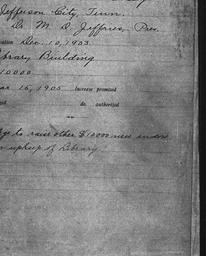 Jefferson City, Tenn.
Dr M. D. Jeffries, Pres.
Dec. 10, 1903.
Library Building
10000
Mar 15, 1905 Increase promised
do. authorized
to raise other $10000 uses
upkeep of Library.